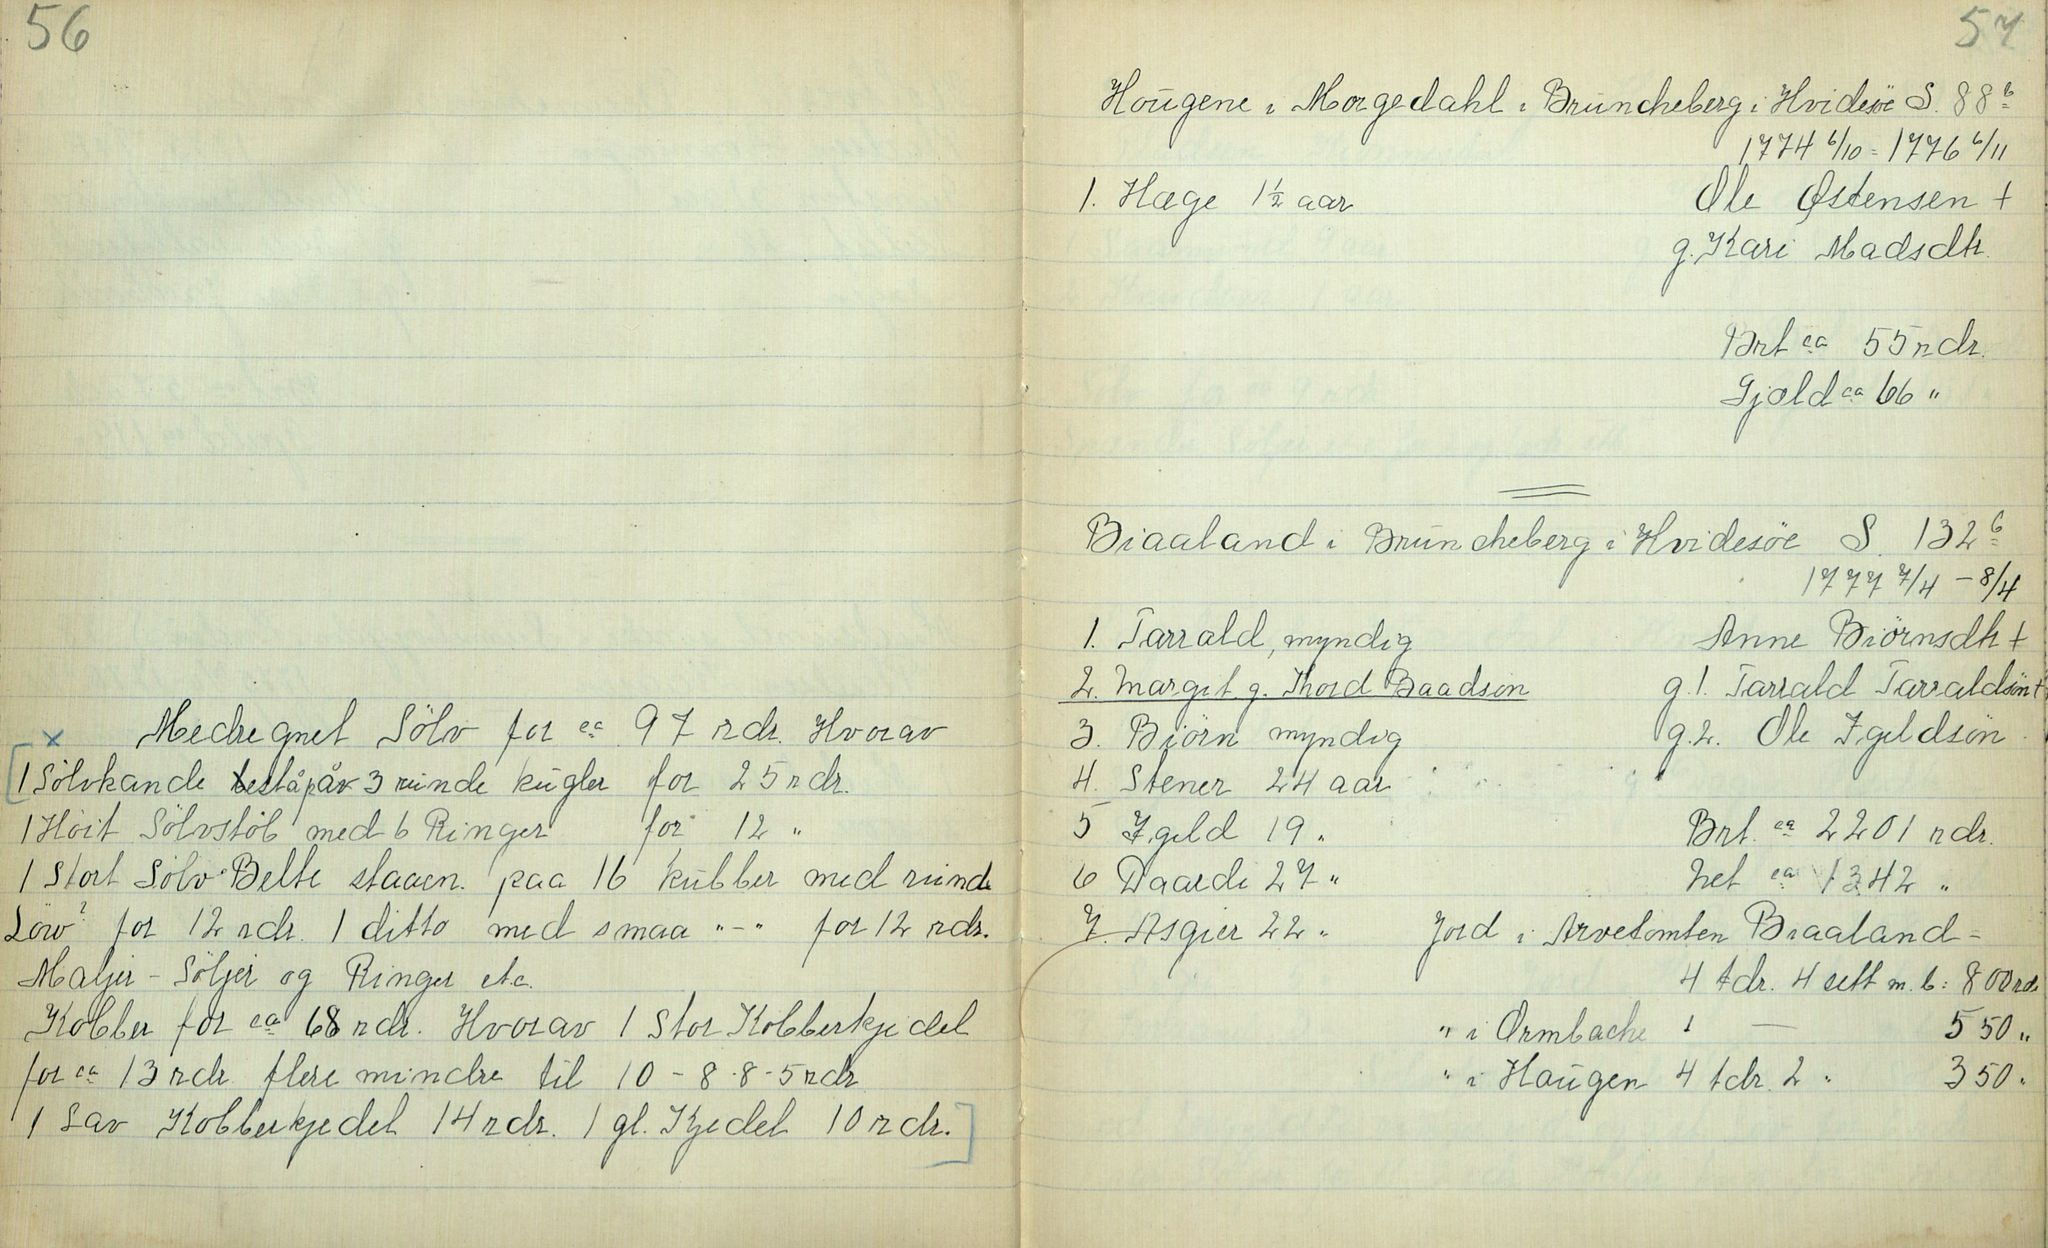 56
Medregnet Sölv for ca 97 rdr. Hvorav
[1 Sölvkande beståpåv 3 runde kugler for 25 rdr.
1 Höit Sölvstöb med 6 Ringer for 12 "
1 Stort Sölv-Belte staaen. paa 16 kubber med runde
Löw? for 12 rdr. 1 ditto med smaa "-" for 12 rdr.
Maljer - Söljer og Ringer etc.
Kobber for ca 68 rdr. Hvorav 1 Stor Kobberkjedel
for ca 13 rdr flere mindre til 10 - 8 - 8 - 5 rdr
1 Lav Kobberkjedel 14 rdr. 1 gl. Kjedel 10 rdr.]
57
Hoŭgene i Morgedahl i Brŭncheberg i Hvidesöe S. 88 b
1774 6/10 = 1776 6/11
1. Hæge 1½ aar Ole Østensen +
g. Kari Madsdtr.
Brt ca 55 rdr.
Gjæld ca 66 "
Biaaland i Brŭncheberg i Hvidesöe S. 132 b
1777 7/4 - 8/4
1. Tarrald, myndig Anne Biörnsdtr +
2. Margit g. Thord Baadsön g.1. Tarrald Tarraldsön +
3. Biörn myndig g.2. Ole Igeldsön.
4. Stener 24 aar
5 Igeld 19 " Brt. ca 2201 rdr.
6 Daardi 27 " Net ca 1342 "
7. Asgier 22 " Jord i Arvetomten Biaaland =
4 tdr. 4 sett m. b: 800 rdr
" i Ormbache 1 — 550 "
" i Haŭgen 4 tdr. 2 " 350 "